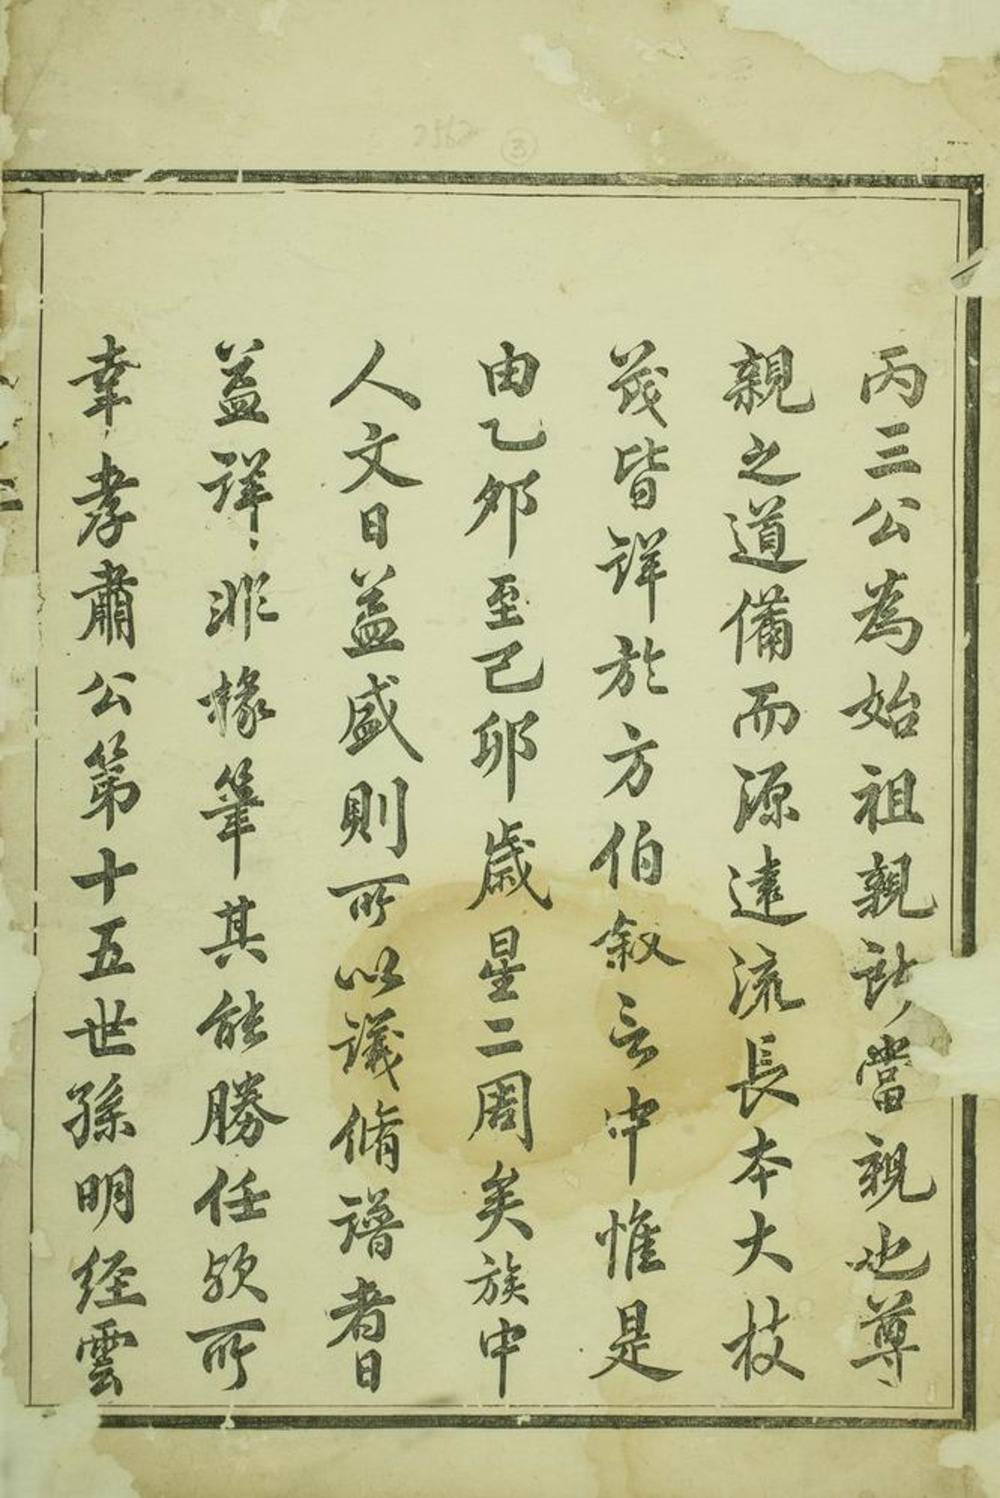 丙三公為始祖親所當親也尊
親之道備而源遠流長本大枝
茂皆詳於方伯叙言中惟是
由乙夘至己卯歲星二周矣族中
人文日益盛則所以議脩譜者日
益詳非椽筆其能勝任欤所
幸孝肅公第十五世孫明經雲